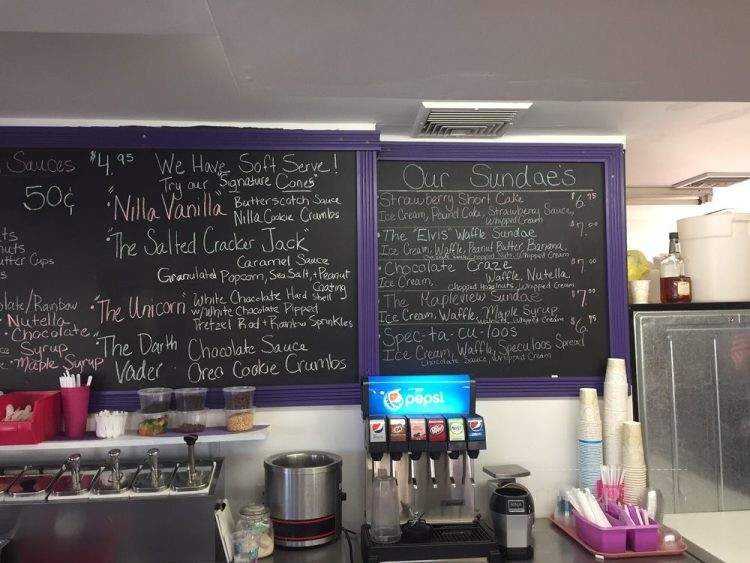 Sauces
50¢
Nutella
Chocolate
Syrup
Maple Syrup
$4.95
We Have Soft Serve!
Try our "Signature Cones"
"Nilla Vanilla" Butterscotch Sauce
Nilla Cookie Crumbs
"The Salted Cracker Jack"
Caramel Sauce
Granulated Popcorn, Sea Salt, + Peanut
Coating
"The Unicorn" White Chocolate Hard Shell
w/White Chocolate Dipped
Pretzel Rod + Rainbow Sprinkles
"The Darth Chocolate Sauce
Vader Oreo Cookie Crumbs
Our Sundae's
Strawberry Short Cake $6.95
Ice Cream, Pound Cake, Strawberry Sauce,
Whipped Cream
The "Elvis" Waffle Sundae $7.00
Ice Cream, Waffle, Peanut Butter, Banana,
Whipped Cream
Chocolate Craze $7.00
Ice Cream, Waffle, Nutella
Chopped Hazelnuts, Whipped Cream
The Mapleview Sundae $7.00
Ice Cream, Waffle, Maple Syrup
Whipped Cream
Spec-ta-cu-loos $6.95
Ice Cream, Waffle, Speculoos Spread
Chocolate Sauce, Whipped Cream
pepsi